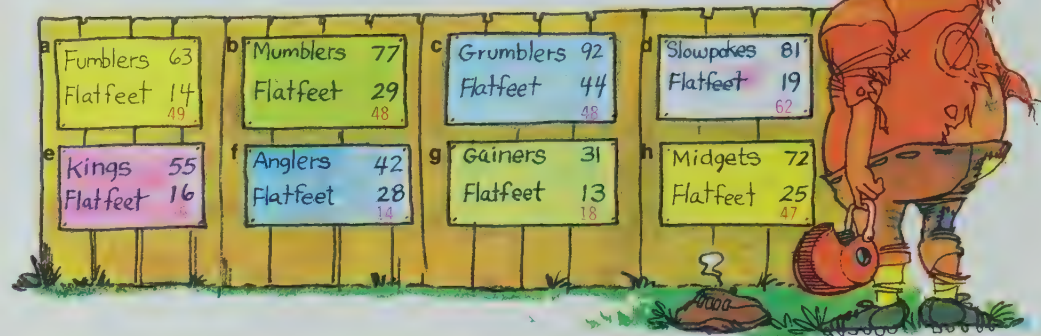 a
Fumblers 63
Flatfeet 14
49
b
Mumblers 77
Flatfeet 29
48
c
Grumblers 92
Flatfeet 44
48
d
Slowpokes 81
Flatfeet 19
62
e
Kings 55
Flatfeet 16
f
Anglers 42
Flatfeet 28
14
g
Gainers 31
Flatfeet 13
18
h
Midgets 72
Flatfeet 25
47